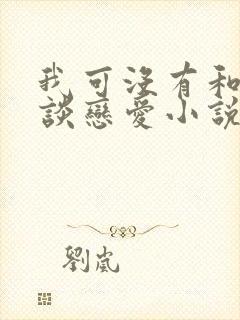 我可沒有和
談戀愛小說
劉嵐